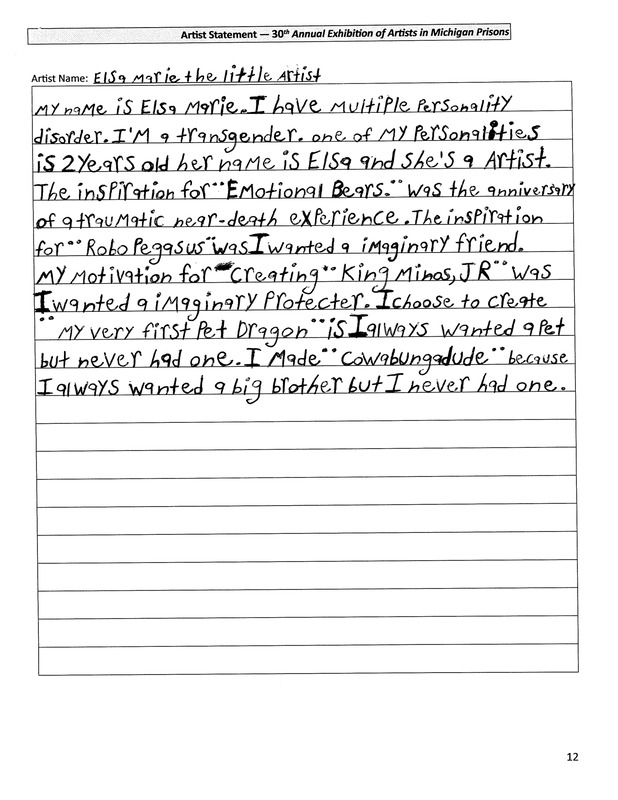 Artist Statement — 30th Annual Exhibition of Artists in Michigan Prisons
Artist Name: Elsa Marie the little Artist
My name is Elsa Marie. I have multiple personality
disorder. I'm a transgender. one of my personalities
is 2 years old her name is Elsa and she's a Artist.
The inspiration for "Emotional Bears." was the anniversary
of a traumatic near-death experience. The inspiration
for "Robo Pegasus" was I wanted a imaginary friend.
My motivation for creating "King Minos, JR" was
I wanted a imaginary protecter. I choose to create
"My very first Pet Dragon" is I always wanted a pet
but never had one. I made "Cowabungadude" because
I always wanted a big brother but I never had one.
12